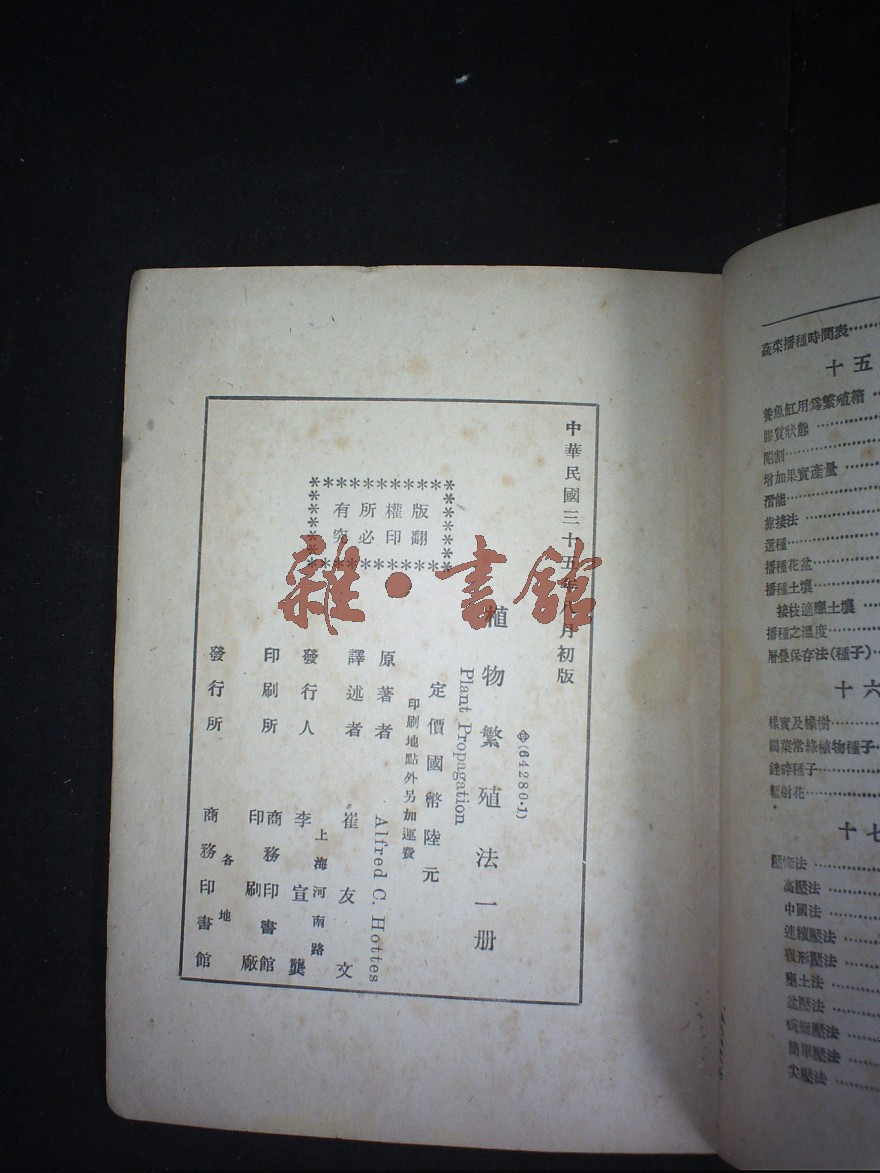 中華民國三十五年八月初版
版權所有
翻印必究
(64280·1)
植物繁殖法一册
Plant Propagation
定價國幣陸元
印刷地點外另加運費
原著者 Alfred C. Hottes
譯述者 崔友文
發行人 李宣龔
上海河南路
印刷所 商務印書館印刷廠
發行所 各地商務印書館
雜·書館
蔬菜播種時間表
十五
養魚缸用爲繁殖箱
膠質狀態
閹割
增加果實產量
潛能
靠接法
選種
播種花盆
播種土壤
接枝適應土壤
播種之溫度
層疊保存法(種子)
十六
橡實及橡樹
闊葉常綠植物種子
銼碎種子
輻射花
十七
壓條法
高壓法
中國法
連續壓法
複形壓法
壅土法
盆壓法
蜿蜒壓法
簡單壓法
尖壓法